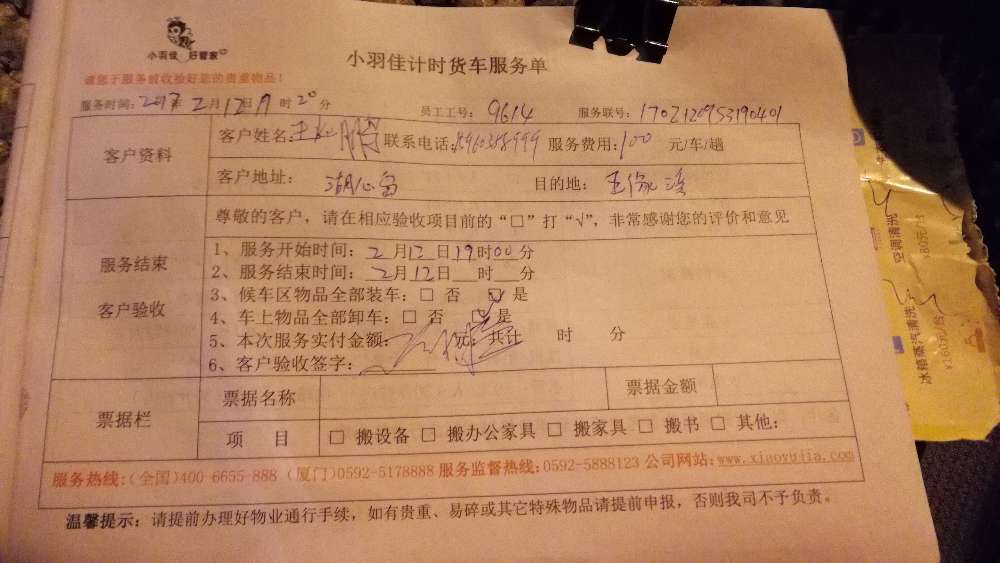 小羽佳 好管家
小羽佳计时货车服务单
请您于服务前收验好您的贵重物品！
服务时间：2017年2月12日19时20分 员工工号：9614 服务联号：1702120953190401
客户资料
客户姓名：王 鹏 联系电话： 服务费用：100 元/车/趟
客户地址：湖心岛 目的地：
服务结束
客户验收
尊敬的客户，请在相应验收项目前的“□”打“√”，非常感谢您的评价和意见
1、服务开始时间：2月12日19时00分
2、服务结束时间：2月12日 时 分
3、候车区物品全部装车：□ 否 ☑ 是
4、车上物品全部卸车：□ 否 ☑ 是
5、本次服务实付金额： 元；共计 时 分
6、客户验收签字：
票据栏
票据名称 票据金额
项 目 □ 搬设备 □ 搬办公家具 □ 搬家具 □ 搬书 □ 其他：
服务热线：(全国)400-6655-888 (厦门)0592-5178888 服务监督热线：0592-5888123 公司网站：www.xiaoyujia.com
温馨提示：请提前办理好物业通行手续，如有贵重、易碎或其它特殊物品请提前申报，否则我司不予负责。
空调清洗
¥80元/台
冰箱蒸汽清洗
¥160元/台